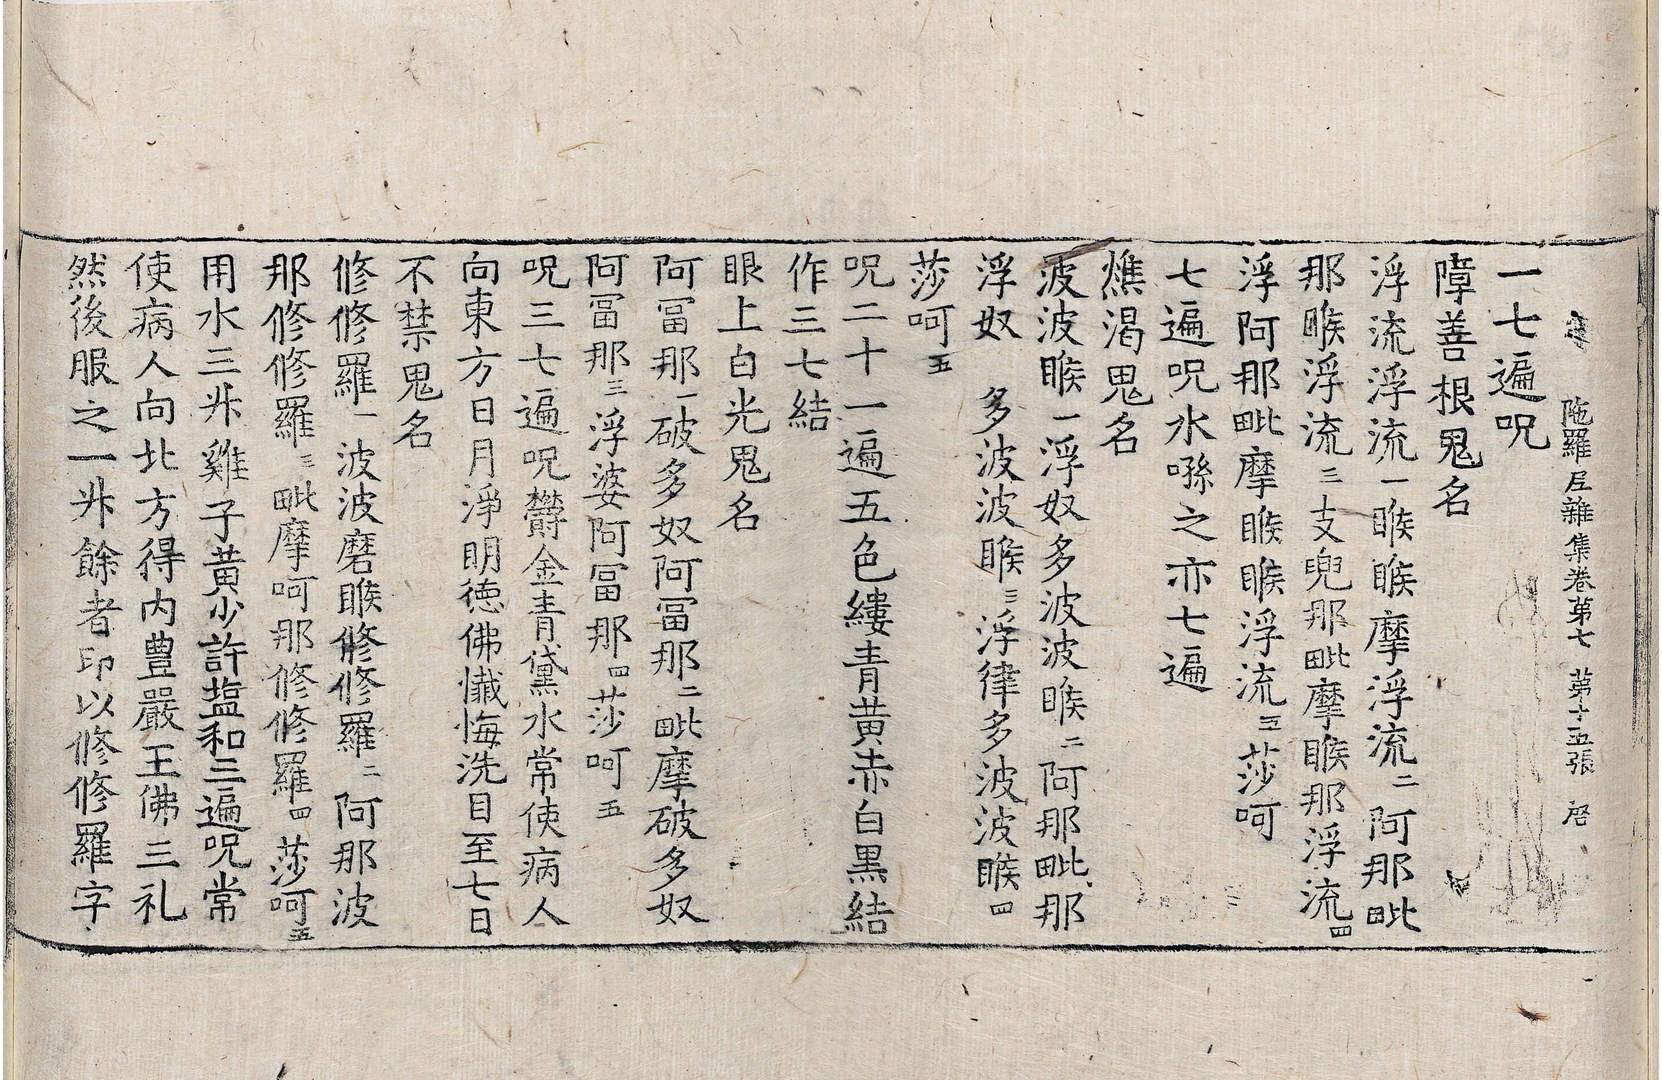 陁羅尼雜集卷第七 第十五張 唇
一七遍呪
障善根鬼名
浮流浮流一睺睺摩浮流二阿那毗
那睺浮流三支兜那毗摩睺那浮流四
浮阿那毗摩睺睺浮流五莎呵
七遍呪水噀之亦七遍
燋渴鬼名
波波睺一浮奴多波波睺二阿那毗那
浮奴 多波波睺三浮律多波波睺四
莎呵五
呪二十一遍五色縷青黄赤白黒結
作三七結
眼上白光鬼名
阿冨那一破多奴阿冨那二毗摩破多奴
阿冨那三浮婆阿冨那四莎呵五
呪三七遍呪欝金青黛水常使病人
向東方日月淨明徳佛懴悔洗目至七日
不禁鬼名
修修羅一波波磨睺修修羅二阿那波
那修修羅三毗摩呵那修修羅四莎呵五
用水三升雞子黄少許塩和三遍呪常
使病人向北方得内豊嚴王佛三礼
然後服之一升餘者印以修修羅字